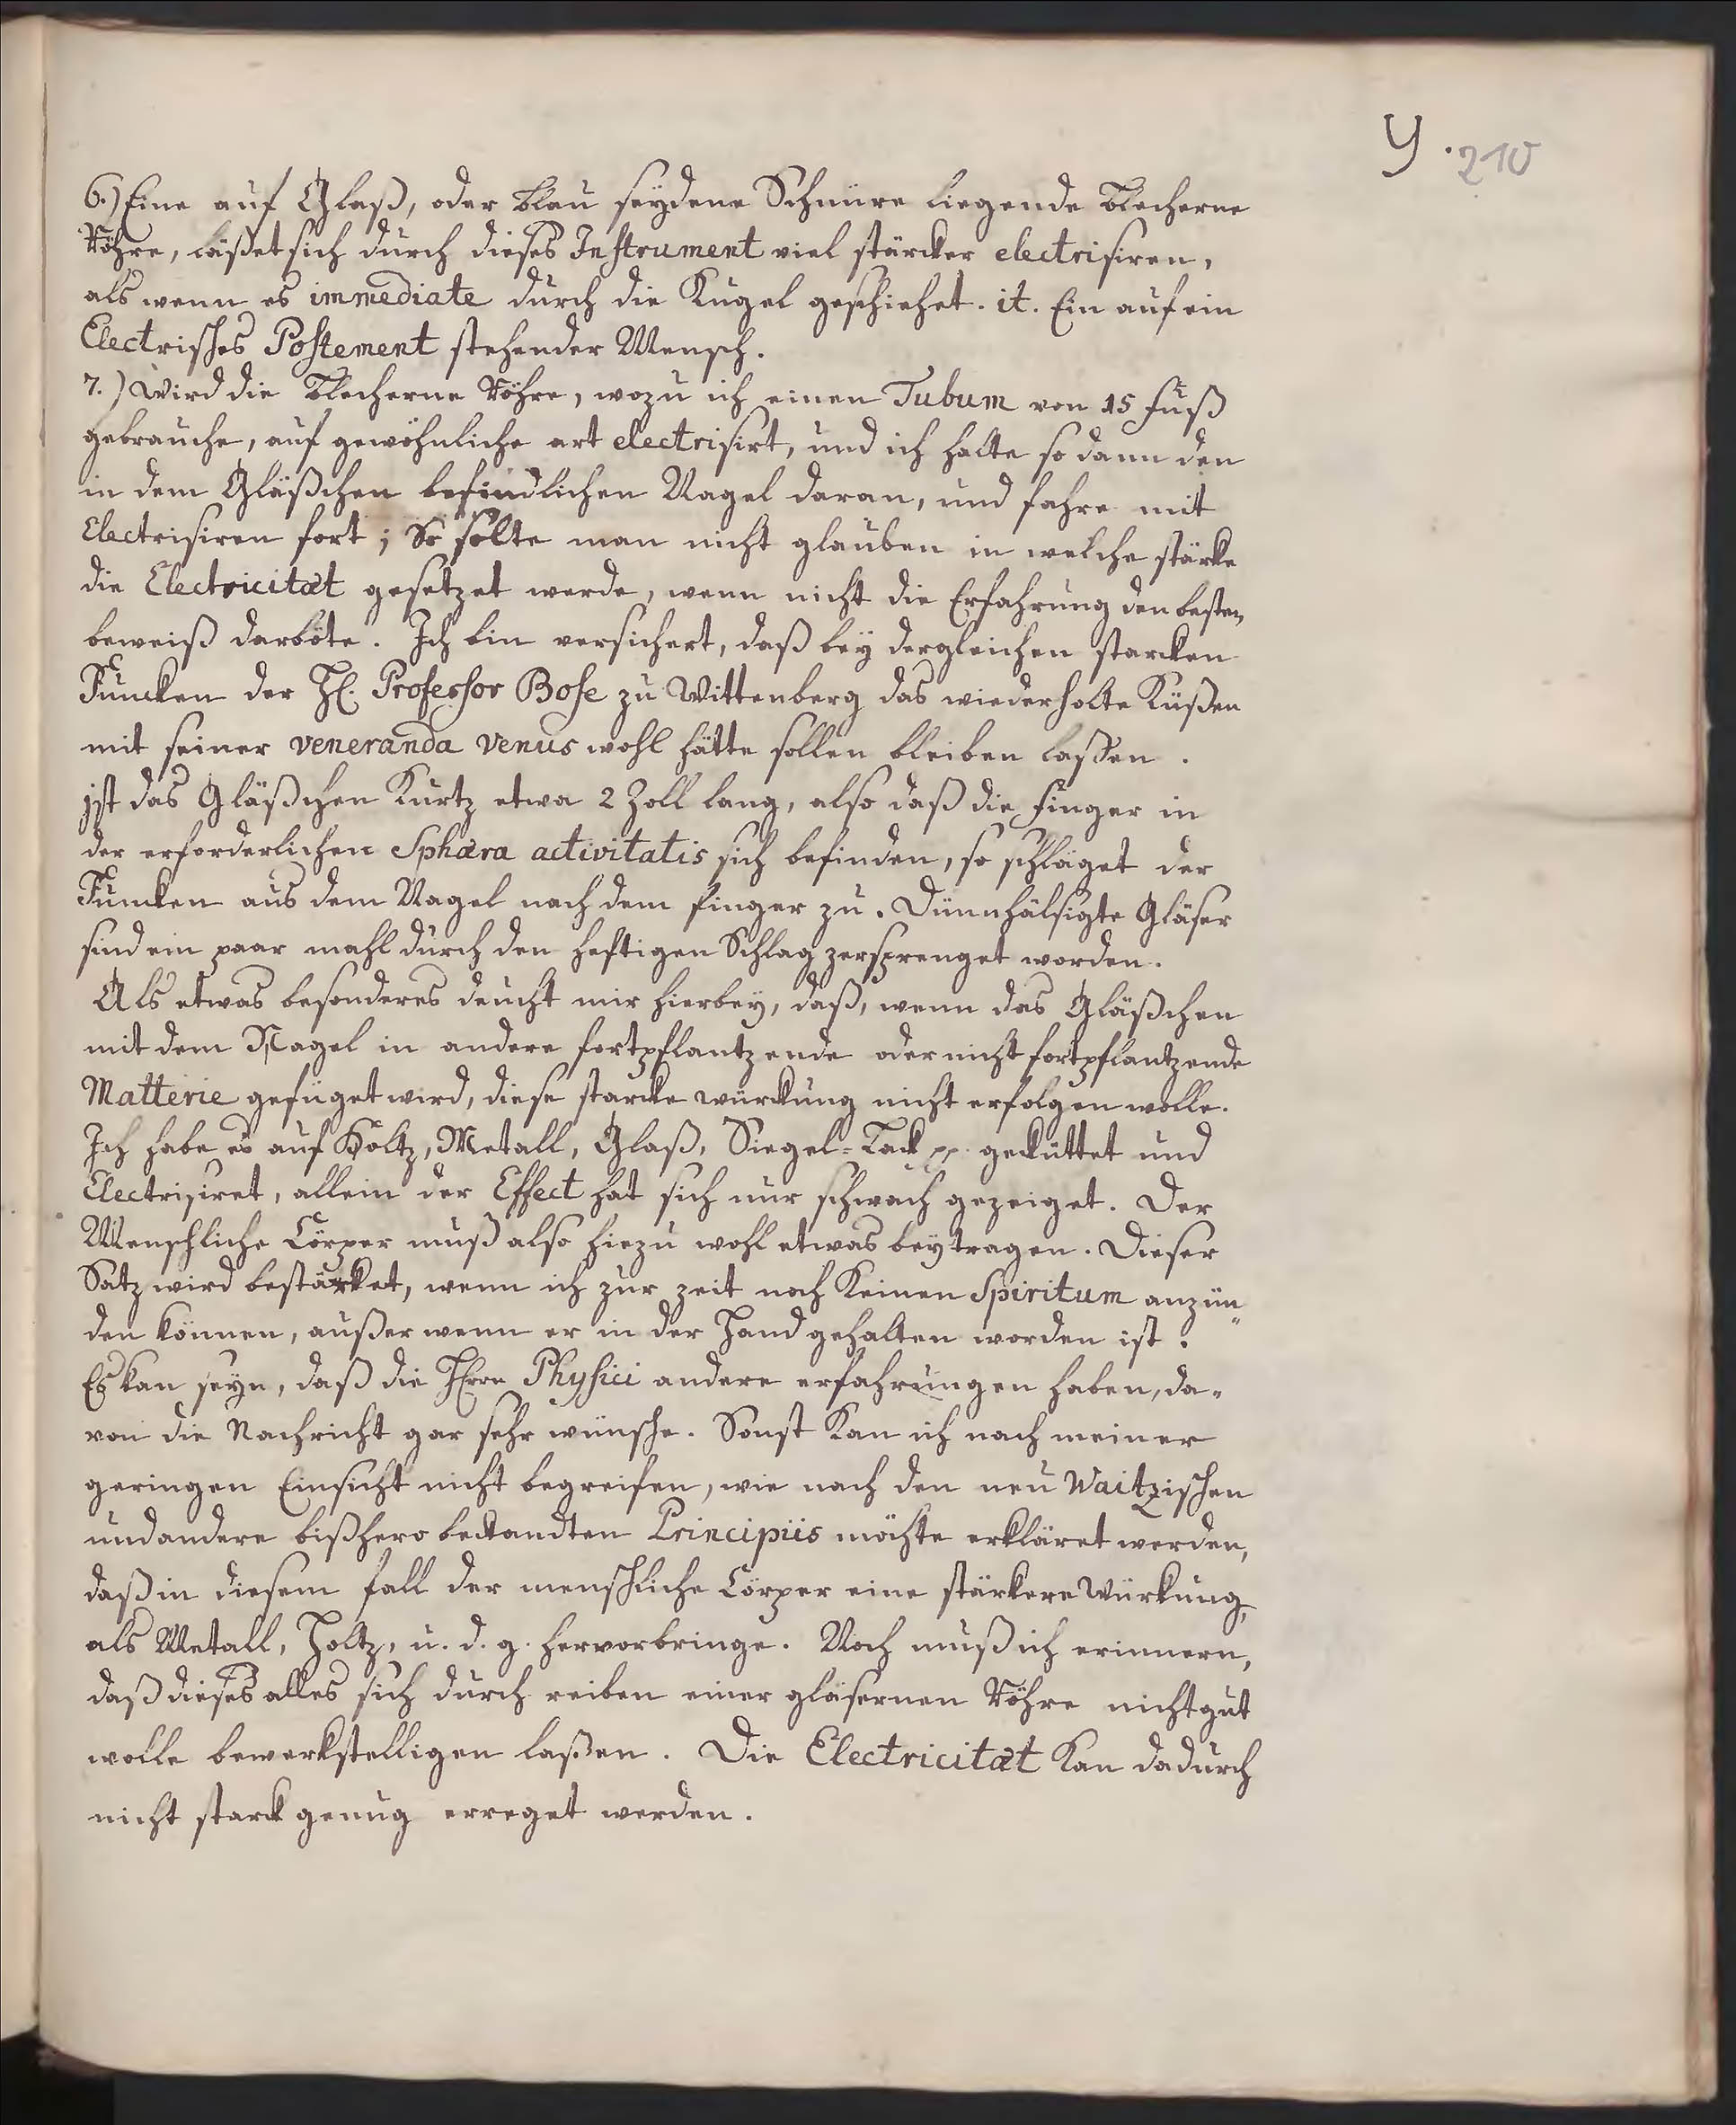 Y. 210
6.) Eine auf Glaß, oder blau seydene Schnüre liegende blecherne
Röhre, läßet sich durch dieses Instrument viel stärcker electrisiren,
als wenn es immediate durch die Kugel geschiehet. it. Ein auf ein
Electrisches Postement stehender Mensch.
7.) Wird die blecherne Röhre, wozu ich einen Tubum von 15 fuß
gebrauche, auf gewöhnliche art electrisirt, und ich halte so dann den
in dem Gläßchen befindlichen Nagel daran, und fahre mit
Electrisiren fort; So solte man nicht glauben in welche stärke
die Electricitæt gesetzet werde, wenn nicht die Erfahrung den besten
beweiß darböte. Ich bin versichert, daß bey dergleichen starcken
Funcken der H. Professor Bose zu Wittenberg das wiederholte Küßen
mit seiner veneranda Venus wohl hätte sollen bleiben laßen.
jst das Gläßchen Kurtz etwa 2 Zoll lang, also daß die finger in
der erforderlichen Sphæra activitatis sich befinden, so schläget der
Funcken aus dem Nagel nach dem finger zu. Dünnhälsigte Gläser
sind ein paar mahl durch den heftigen Schlag zersprenget worden.
Als etwas besonderes deucht mir hierbey, daß, wenn das Gläßchen
mit dem Nagel in andere fortpflantzende oder nicht fortpflantzende
Matterie gefüget wird, diese starcke würckung nicht erfolgen wolle.
Ich habe es auf Holtz, Metall, Glaß, Siegel-Lack pp. geküttet und
Electrisiret, allein der Effect hat sich nur schwach gezeiget. Der
Menschliche Cörper muß also hiezu wohl etwas beytragen. Dieser
Satz wird bestärket, wenn ich zur zeit noch Keinen Spiritum anzün„
den können, außer wenn er in der Hand gehalten worden ist.
Es kan seyn, daß die Hrrn Physici andere erfahrungen haben, da-
von die Nachricht gar sehr wünsche. Sonst Kan ich nach meiner
geringen Einsicht nicht begreifen, wie nach den neu Waitzischen
und andere bißhero bekandten Principiis möchte erkläret werden,
daß in diesem fall der menschliche Cörper eine stärkere Würkung,
als Metall, Holtz, u. d. g. hervorbringe. Noch muß ich erinnern,
daß dieses alles sich durch reiben einer gläsernen Röhre nicht gut
wolle bewerkstelligen laßen. Die Electricitæt Kan dadurch
nicht starck genug erreget werden.